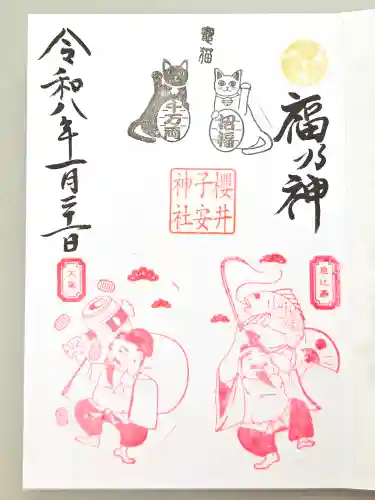 福乃神
竈猫
招福
千万両
櫻井
子安
神社
恵比寿
大黒
令和八年一月二十一日